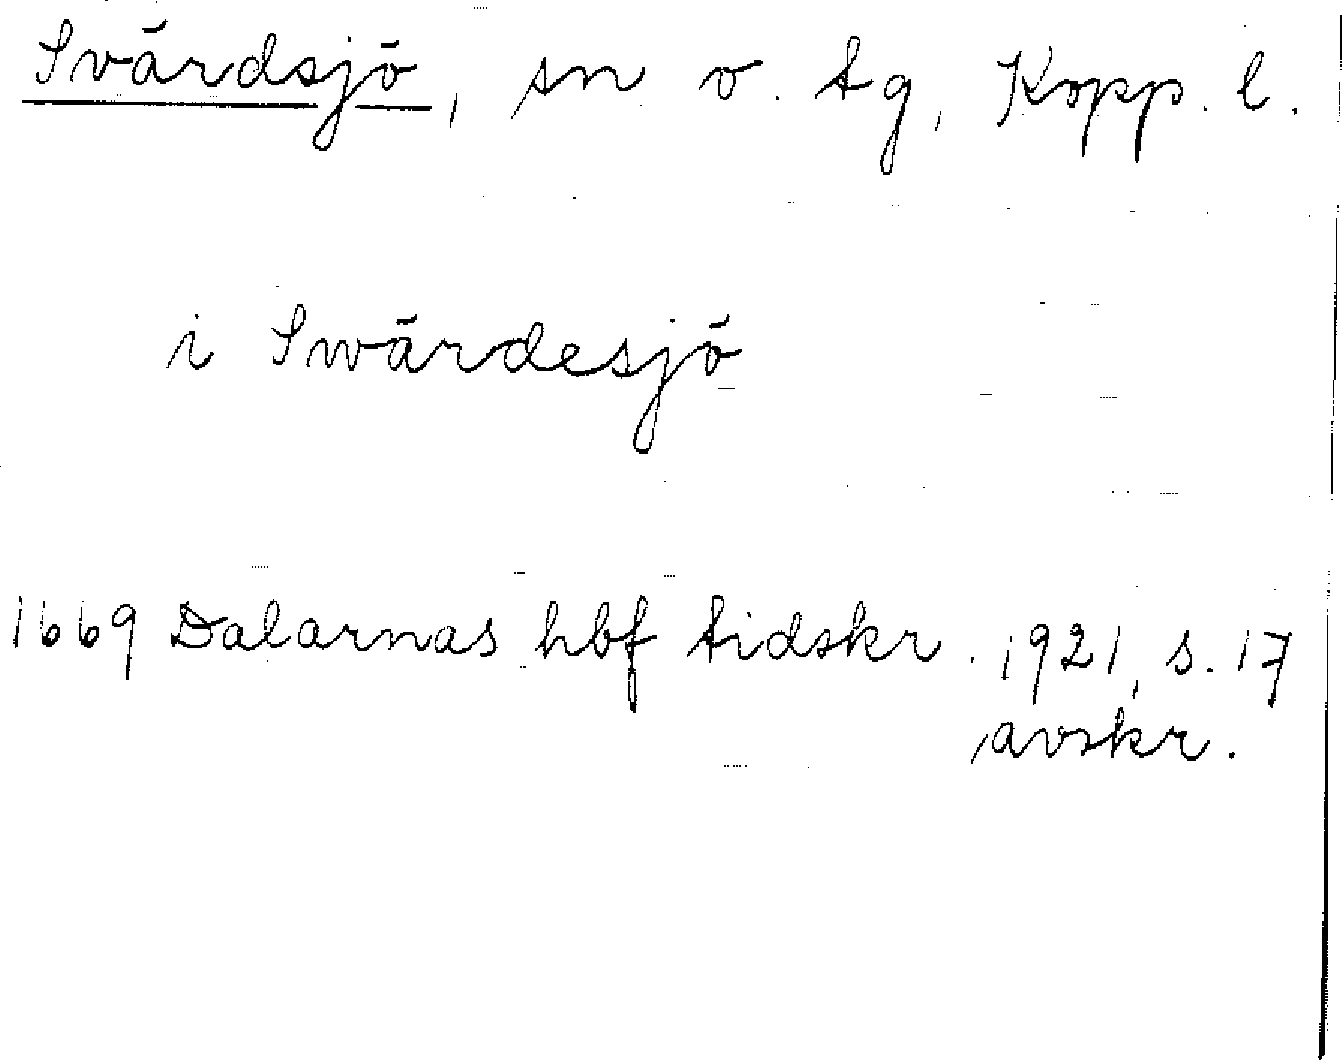 Svärdsjö, sn o. tg, Kopp. l.
i Swärdesjö
1669 Dalarnas hbf tidskr. 1921, s. 17
avskr.